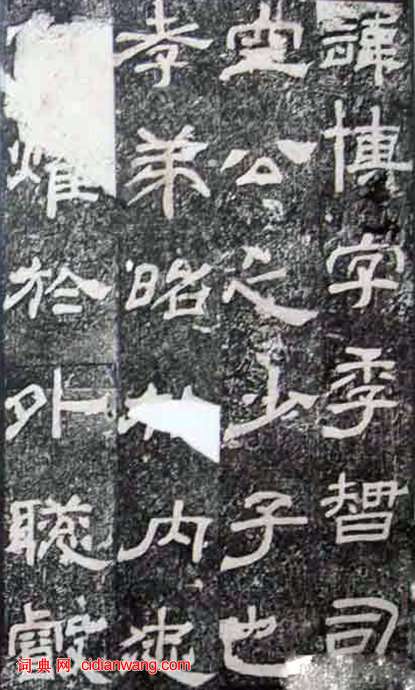 諱博字季智司
空公之少子也
孝弟昭於內忠
耀於外聰叡
词典网 cidianwang.com